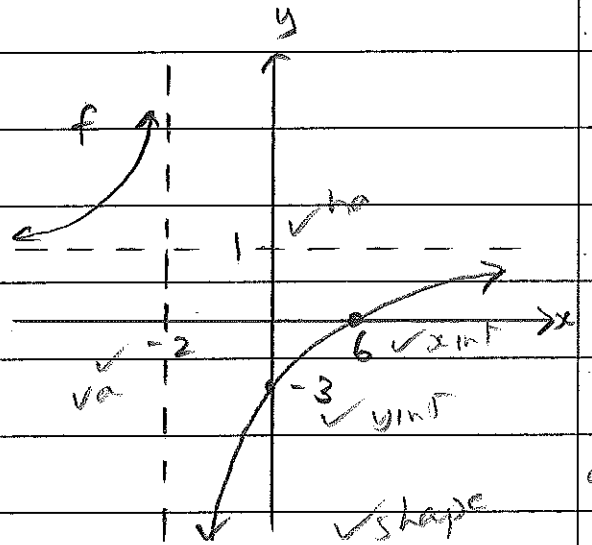 y
f
✓ ha
1
x
-2
6 ✓ x int
✓
va
-3
✓ y int
✓ shape